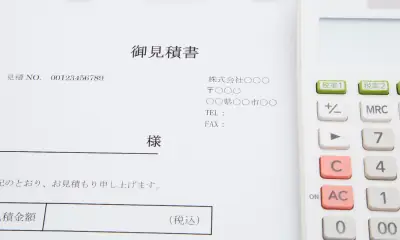 御見積書
見積 NO. 00123456789
株式会社〇〇〇
〒〇〇〇
〇〇県〇〇市〇〇
TEL:
FAX:
様
記のとおり、お見積もり申し上げます。
見積金額 (税込)
税抜1 税込2
+/- MRC
▶ 7
C 4
ON AC 1
0 00